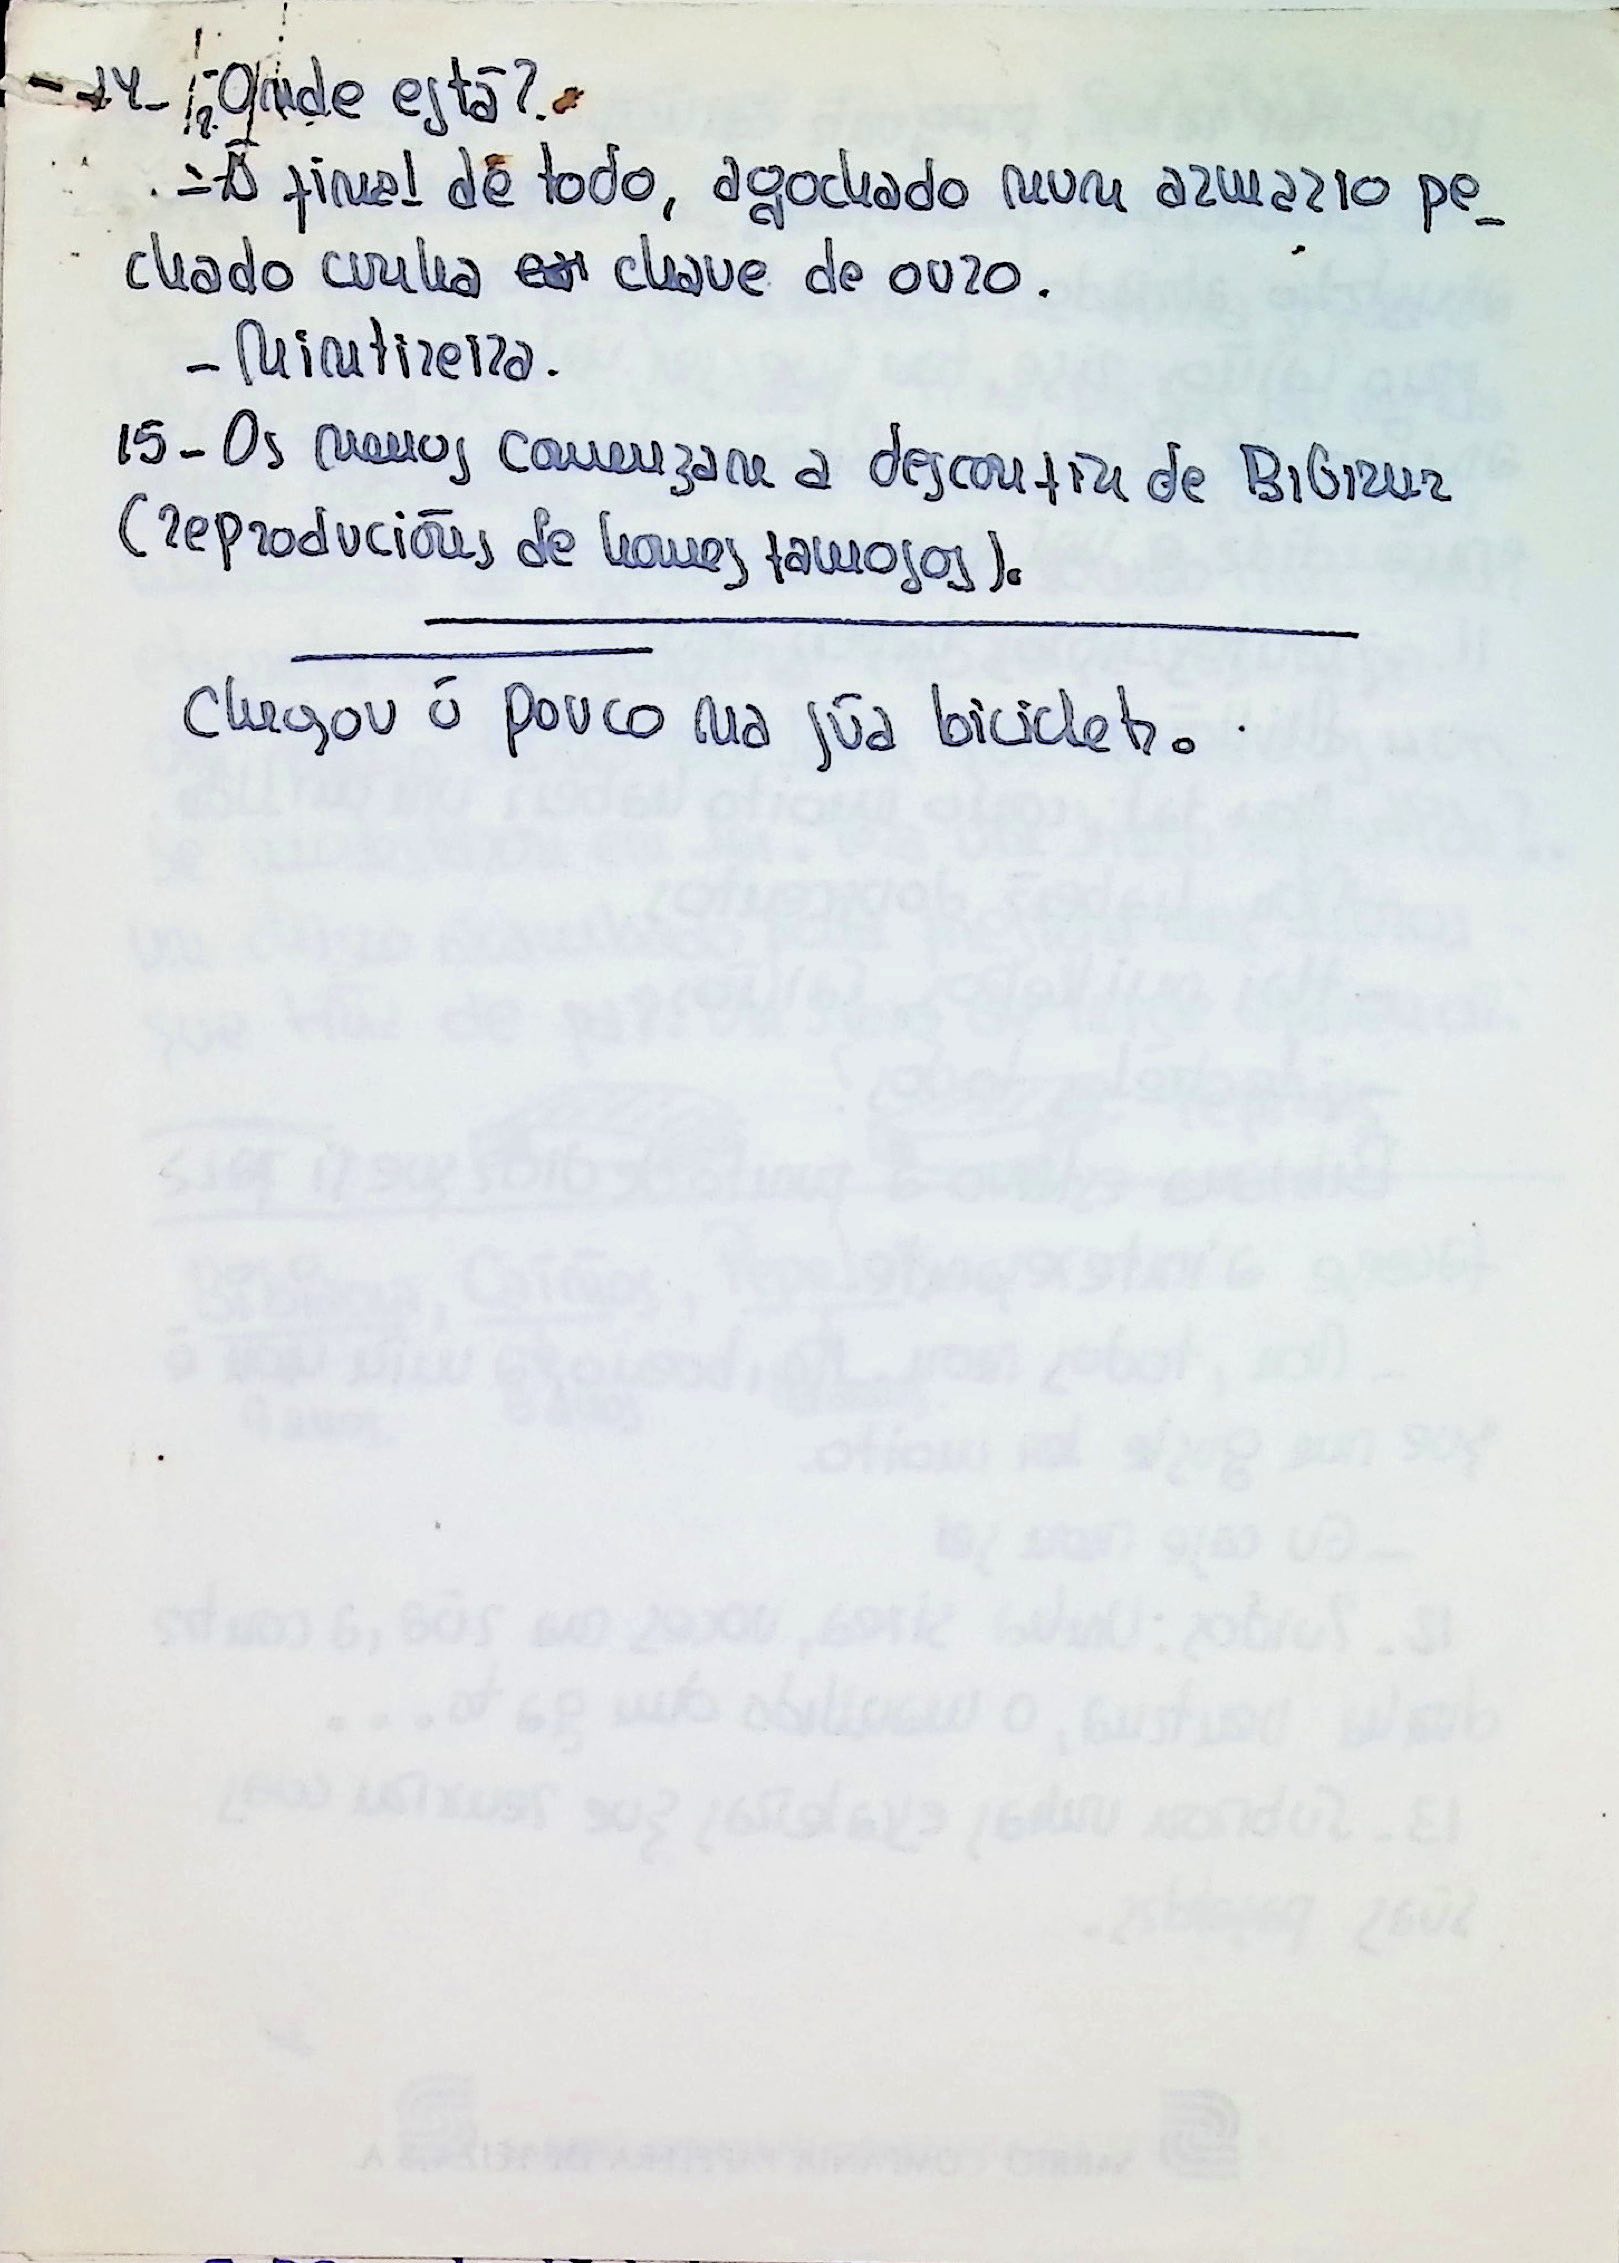 -14- ¿Onde está?.
-Ó final de todo, agochado nun armario pe-
chado cunha chave de ouro.
- Mintireira.
15- Os nenos comenzan a desconfiar de
(reproducións de homes famosos).
Chegou ó pouco na súa bicicleta.